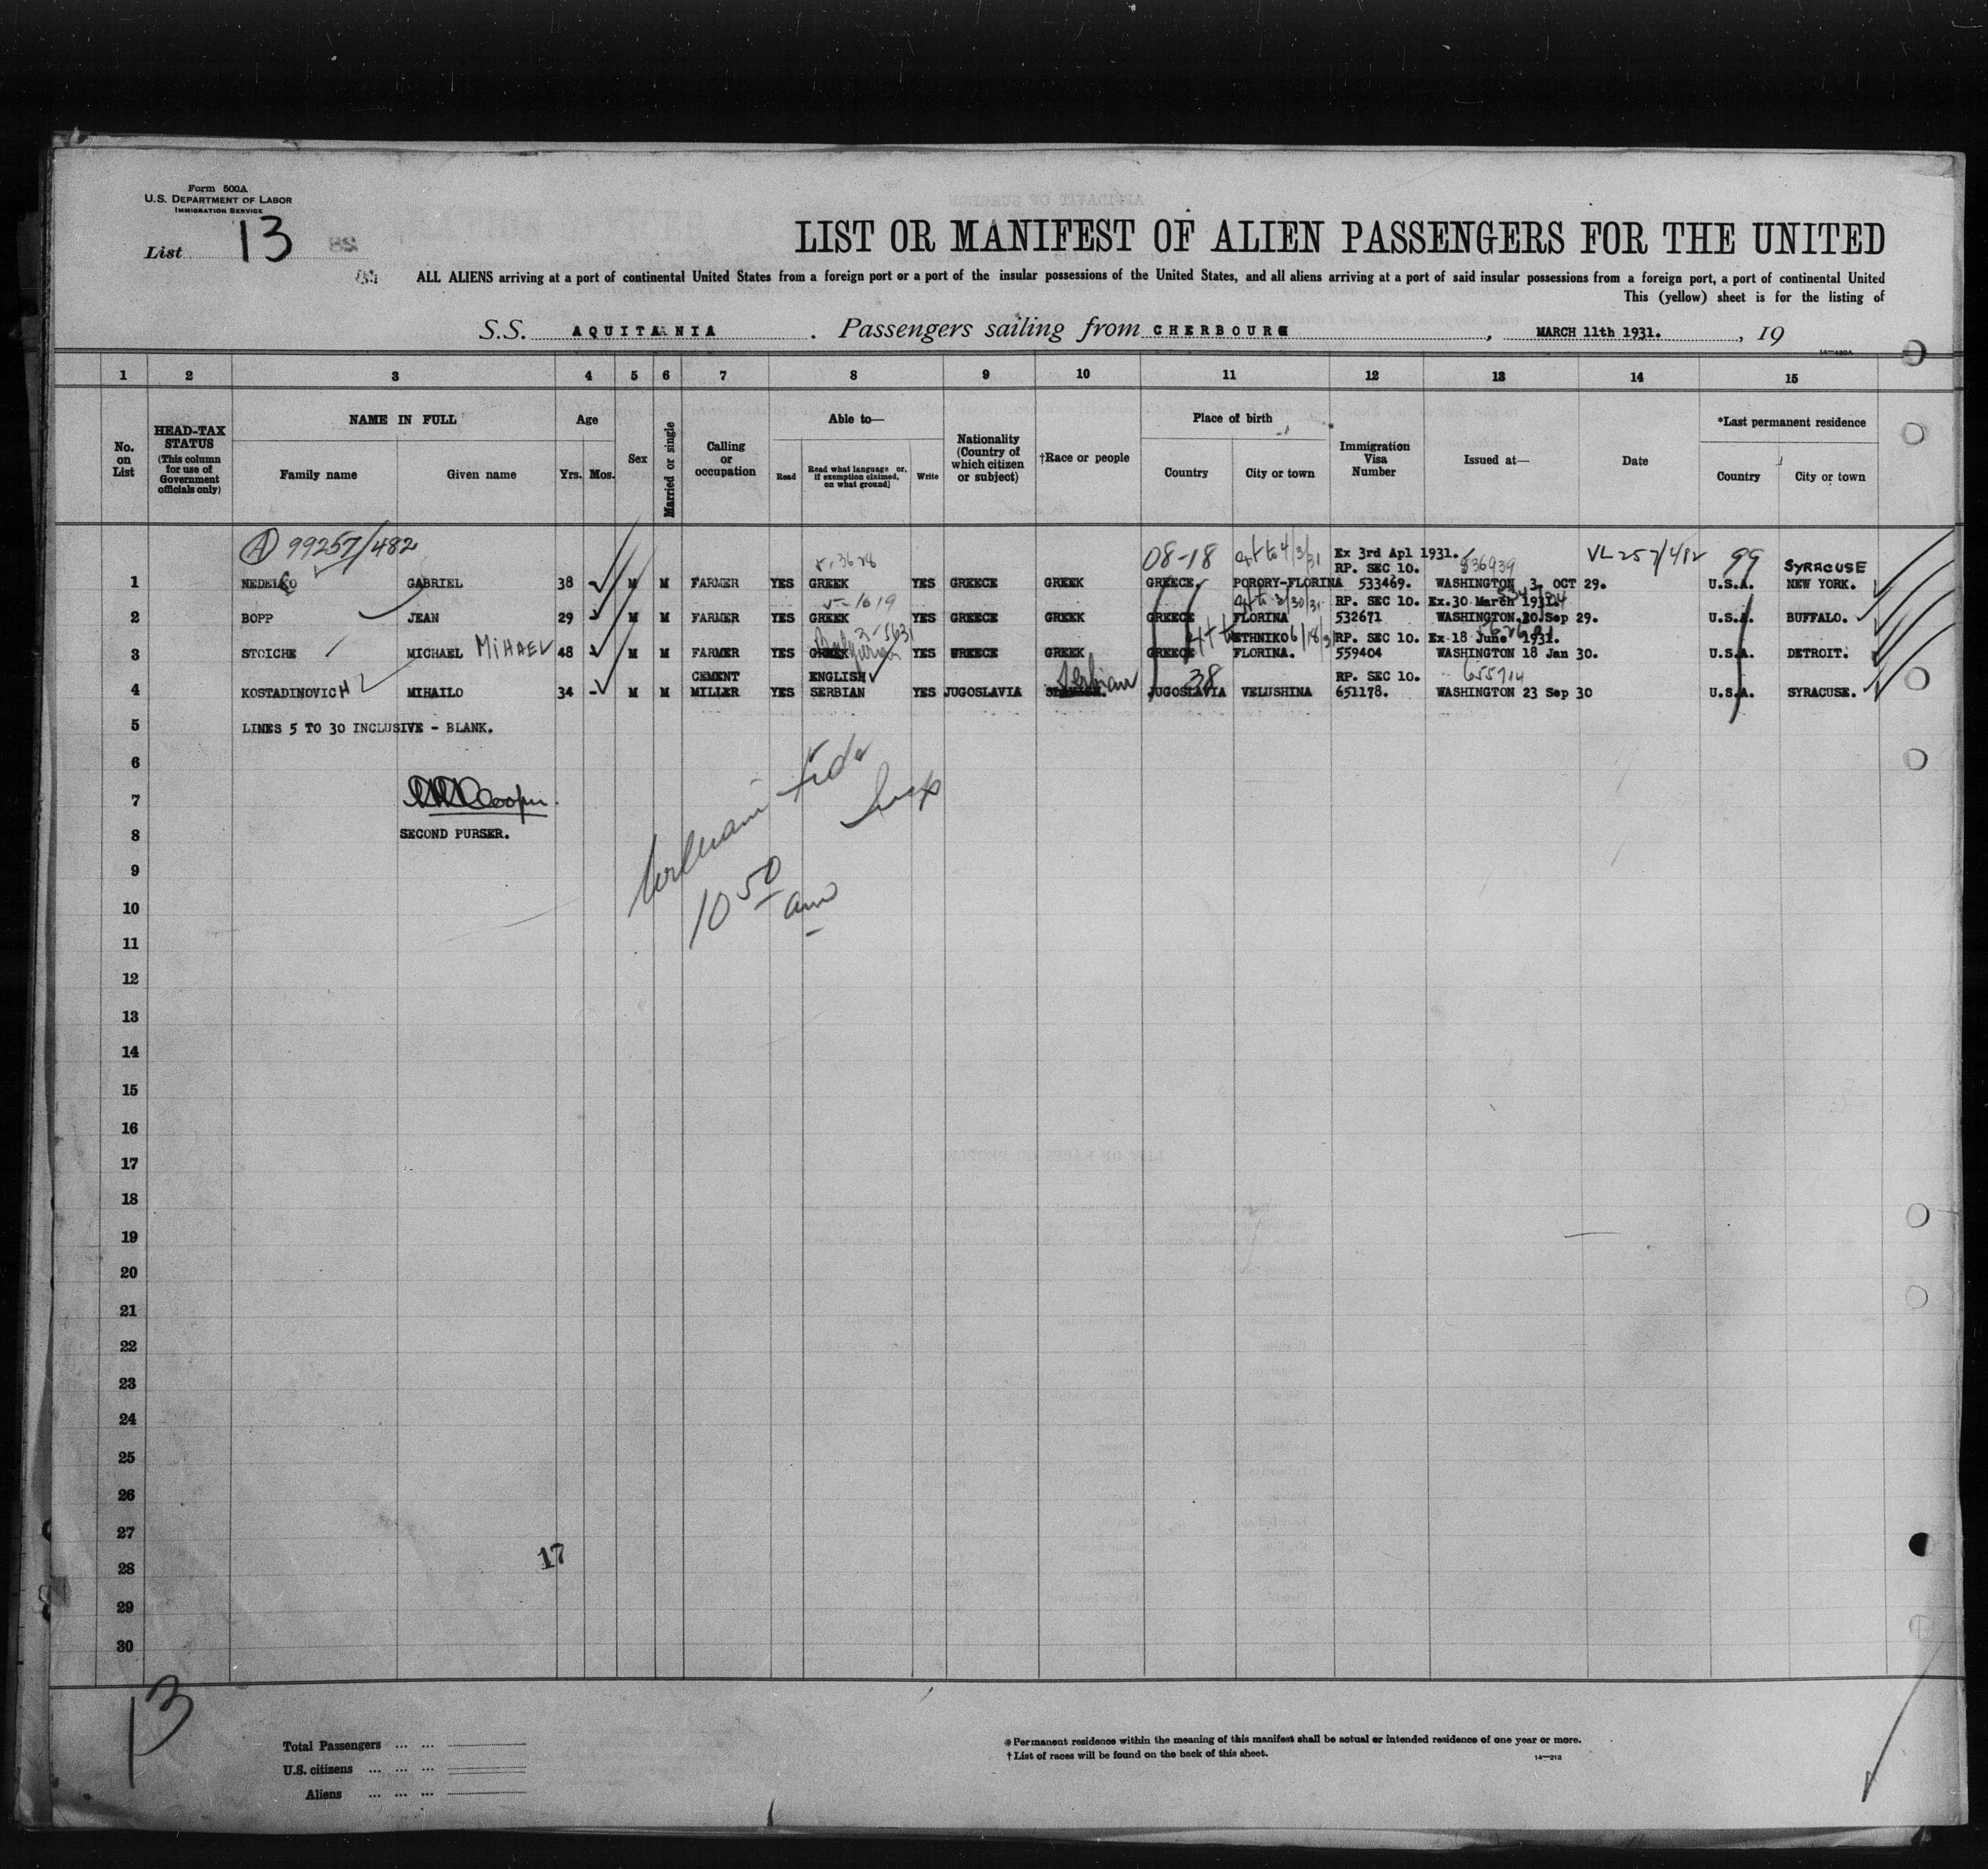 Form 500A
U.S. DEPARTMENT OF LABOR
IMMIGRATION SERVICE
List 13
28
LIST OR MANIFEST OF ALIEN PASSENGERS FOR THE UNITED
ALL ALIENS arriving at a port of continental United States from a foreign port or a port of the insular possessions of the United States, and all aliens arriving at a port of said insular possessions from a foreign port, a port of continental United
This (yellow) sheet is for the listing of
S.S. AQUITANIA . Passengers sailing from CHERBOURG , MARCH 11th 1931. , 19
14—430A
1 2 3 4 5 6 7 8 9 10 11 12 13 14 15
No. on List
HEAD-TAX STATUS (This column for use of Government officials only)
NAME IN FULL
Family name Given name
Age
Yrs. Mos.
Sex
Married or single
Calling or occupation
Able to—
Read Read what language or, if exemption claimed, on what ground] Write
Nationality (Country of which citizen or subject)
†Race or people
Place of birth
Country City or town
Immigration Visa Number
Issued at—
Date
*Last permanent residence
Country City or town
A 99257/482 08-18 4/3/31 Ex 3rd Apl 1931. VL 257/482 99
RP. SEC 10. 536939 SYRACUSE
1 NEDELKO GABRIEL 38 M M FARMER YES GREEK YES GREECE GREEK GREECE. PORORY-FLORINA 533469. WASHINGTON 3 OCT 29. U.S.A. NEW YORK.
5-1619 3/30/31 RP. SEC 10. Ex.30 March 1931.
2 BOPP JEAN 29 M M FARMER YES GREEK YES GREECE GREEK GREECE FLORINA 532671 WASHINGTON.30.Sep 29. U.S.A. BUFFALO.
ETHNIKO 6/18/31 RP. SEC 10. Ex-18 June 1931.
3 STOICHE MICHAEL MIHAEL 48 M M FARMER YES GREEK YES GREECE GREEK GREECE FLORINA. 559404 WASHINGTON 18 Jan 30. U.S.A. DETROIT.
CEMENT ENGLISH Serbian 38 RP. SEC 10. 655714
4 KOSTADINOVICH MIHAILO 34 - M M MILLER YES SERBIAN YES JUGOSLAVIA JUGOSLAVIA VELUSHINA 651178. WASHINGTON 23 Sep 30 U.S.A. SYRACUSE.
5 LINES 5 TO 30 INCLUSIVE - BLANK.
6
7
8 SECOND PURSER.
9
10 10 50 am
11
12
13
14
15
16
17
18
19
20
21
22
23
24
25
26
27
28 17
29
30
13
Total Passengers ... ...
U.S. citizens ... ... ...
Aliens ... ... ...
*Permanent residence within the meaning of this manifest shall be actual or intended residence of one year or more.
†List of races will be found on the back of this sheet.
14—213